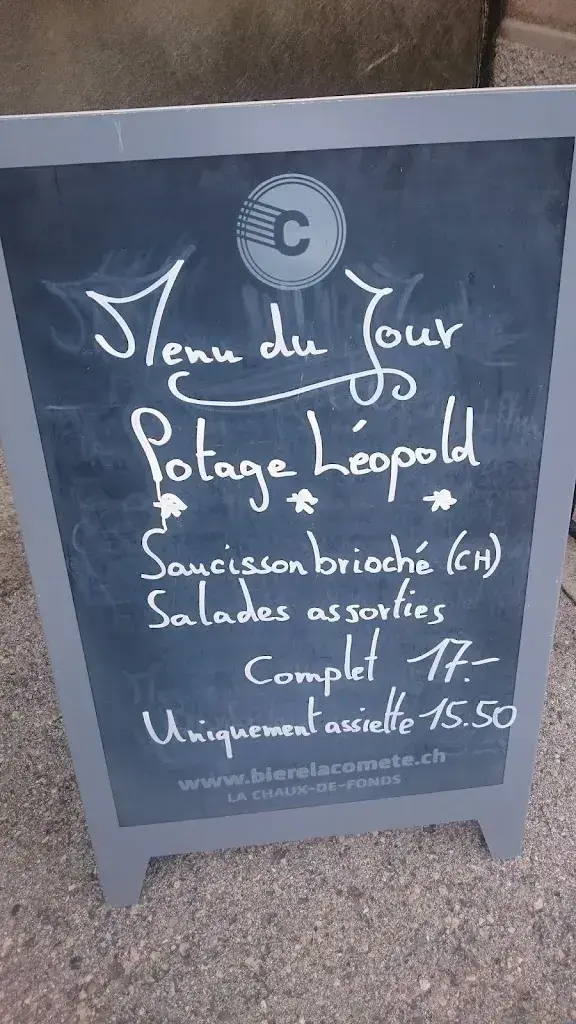 C
Menu du Jour
Potage Léopold
Saucisson brioché (CH)
Salades assorties
Complet 17.-
Uniquement assiette 15.50
www.bierelacomete.ch
LA CHAUX-DE-FONDS